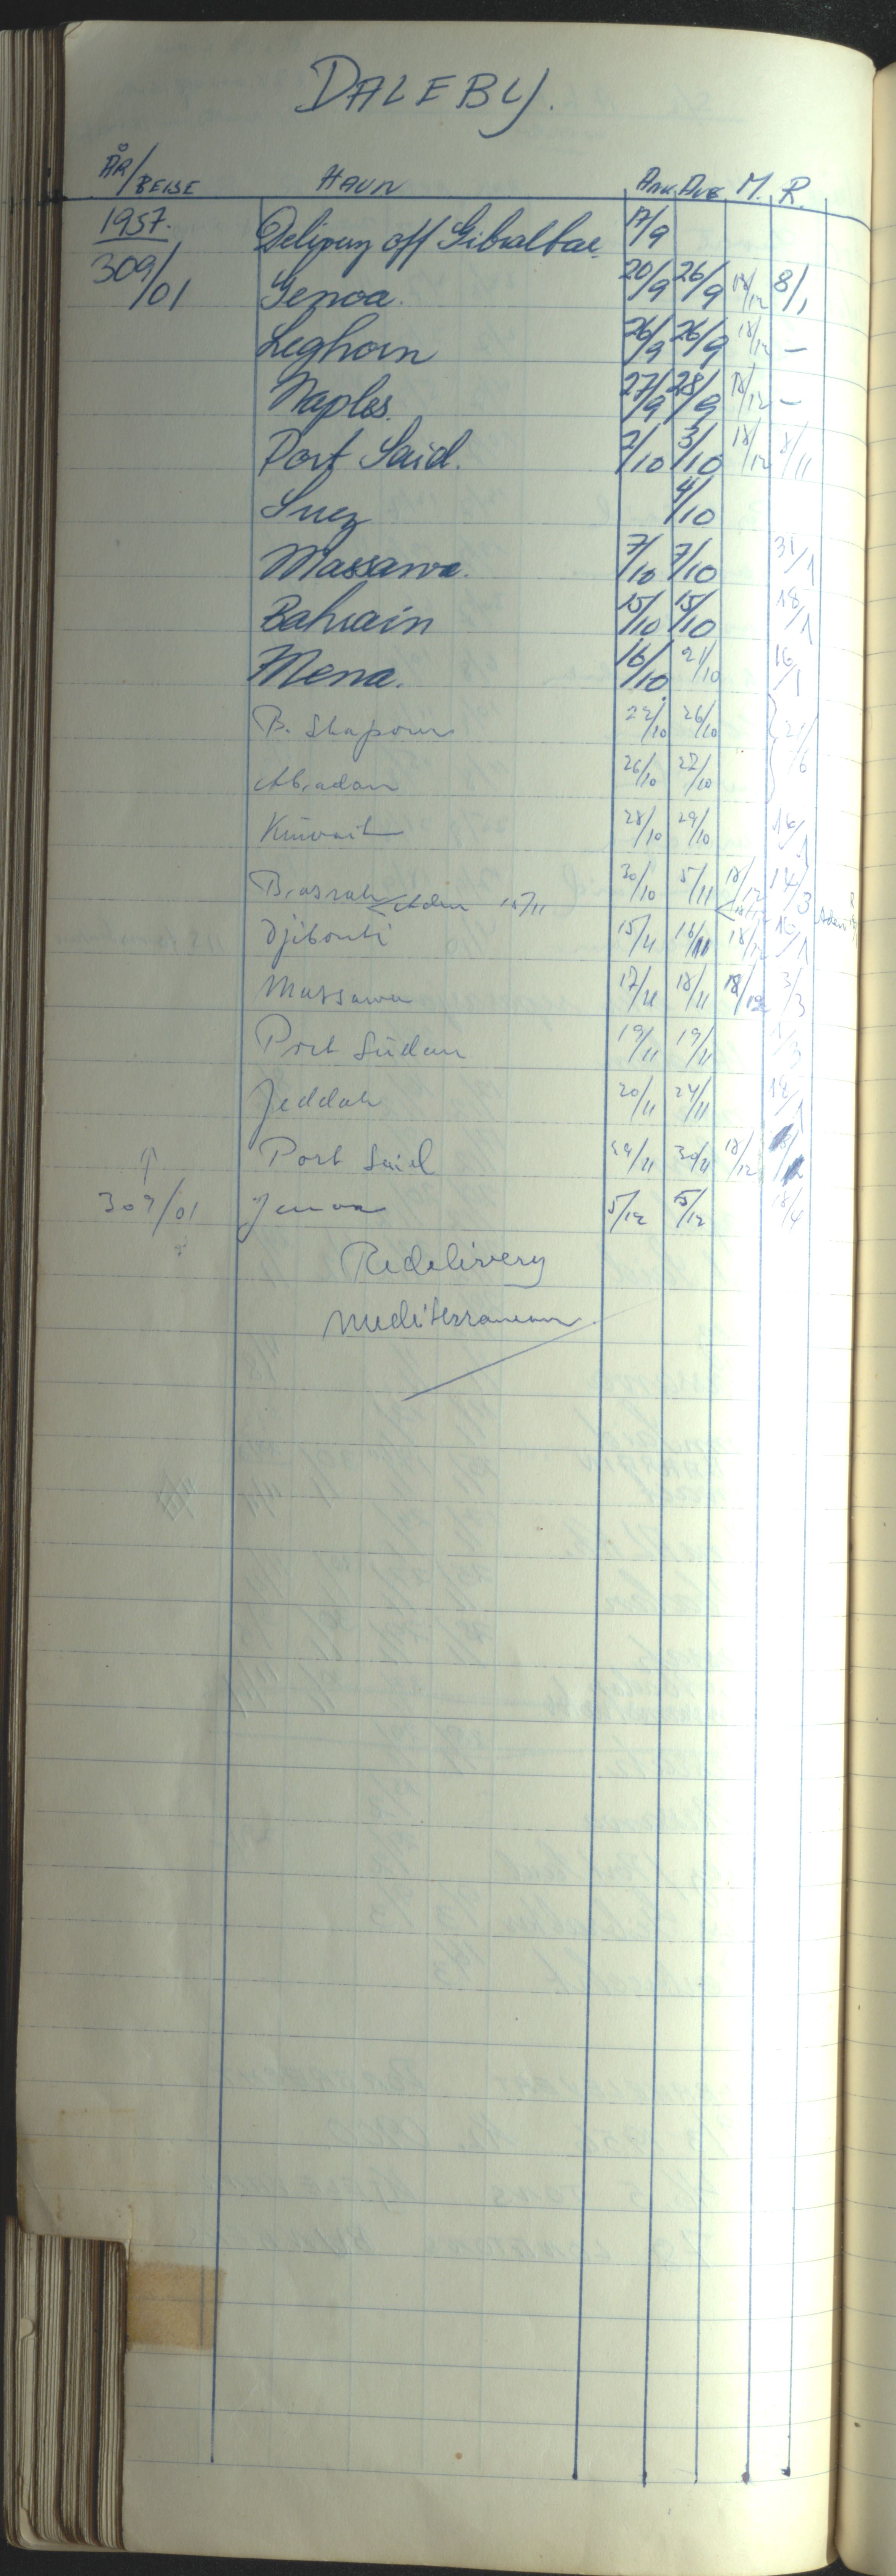 DALEBY.
ÅR/REISE HAVN ANK. AVG. M. R.
1957. Delivery off Gibraltar. 17/9
309/01 Genoa. 20/9 26/9 18/12 8/1
Leghorn 26/9 26/9 18/12 —
Naples. 27/9 28/9 18/12 —
Port Said. 2/10 3/10 18/12 8/11
Suez 4/10
Massawa. 7/10 7/10 31/1
Bahrain 15/10 15/10 18/1
Mena. 16/10 21/10 16/1
B. Shapour 22/10 26/10
Abadan 26/10 27/10
Kuwait 28/10 29/10 16/1
Basrah 30/10 5/11 18/12 14/3
Aden 15/11 18/12 Aden
Djibouti 15/11 16/11 18/12 16/1
Massawa 17/11 18/11 18/12 3/3
Port Sudan 19/11 19/11 1/3
Jeddah 20/11 24/11 18/1
↑ Port Said 29/11 30/11 18/12
309/01 Genoa 5/12 5/12 18/4
Redelivery
Mediterranean